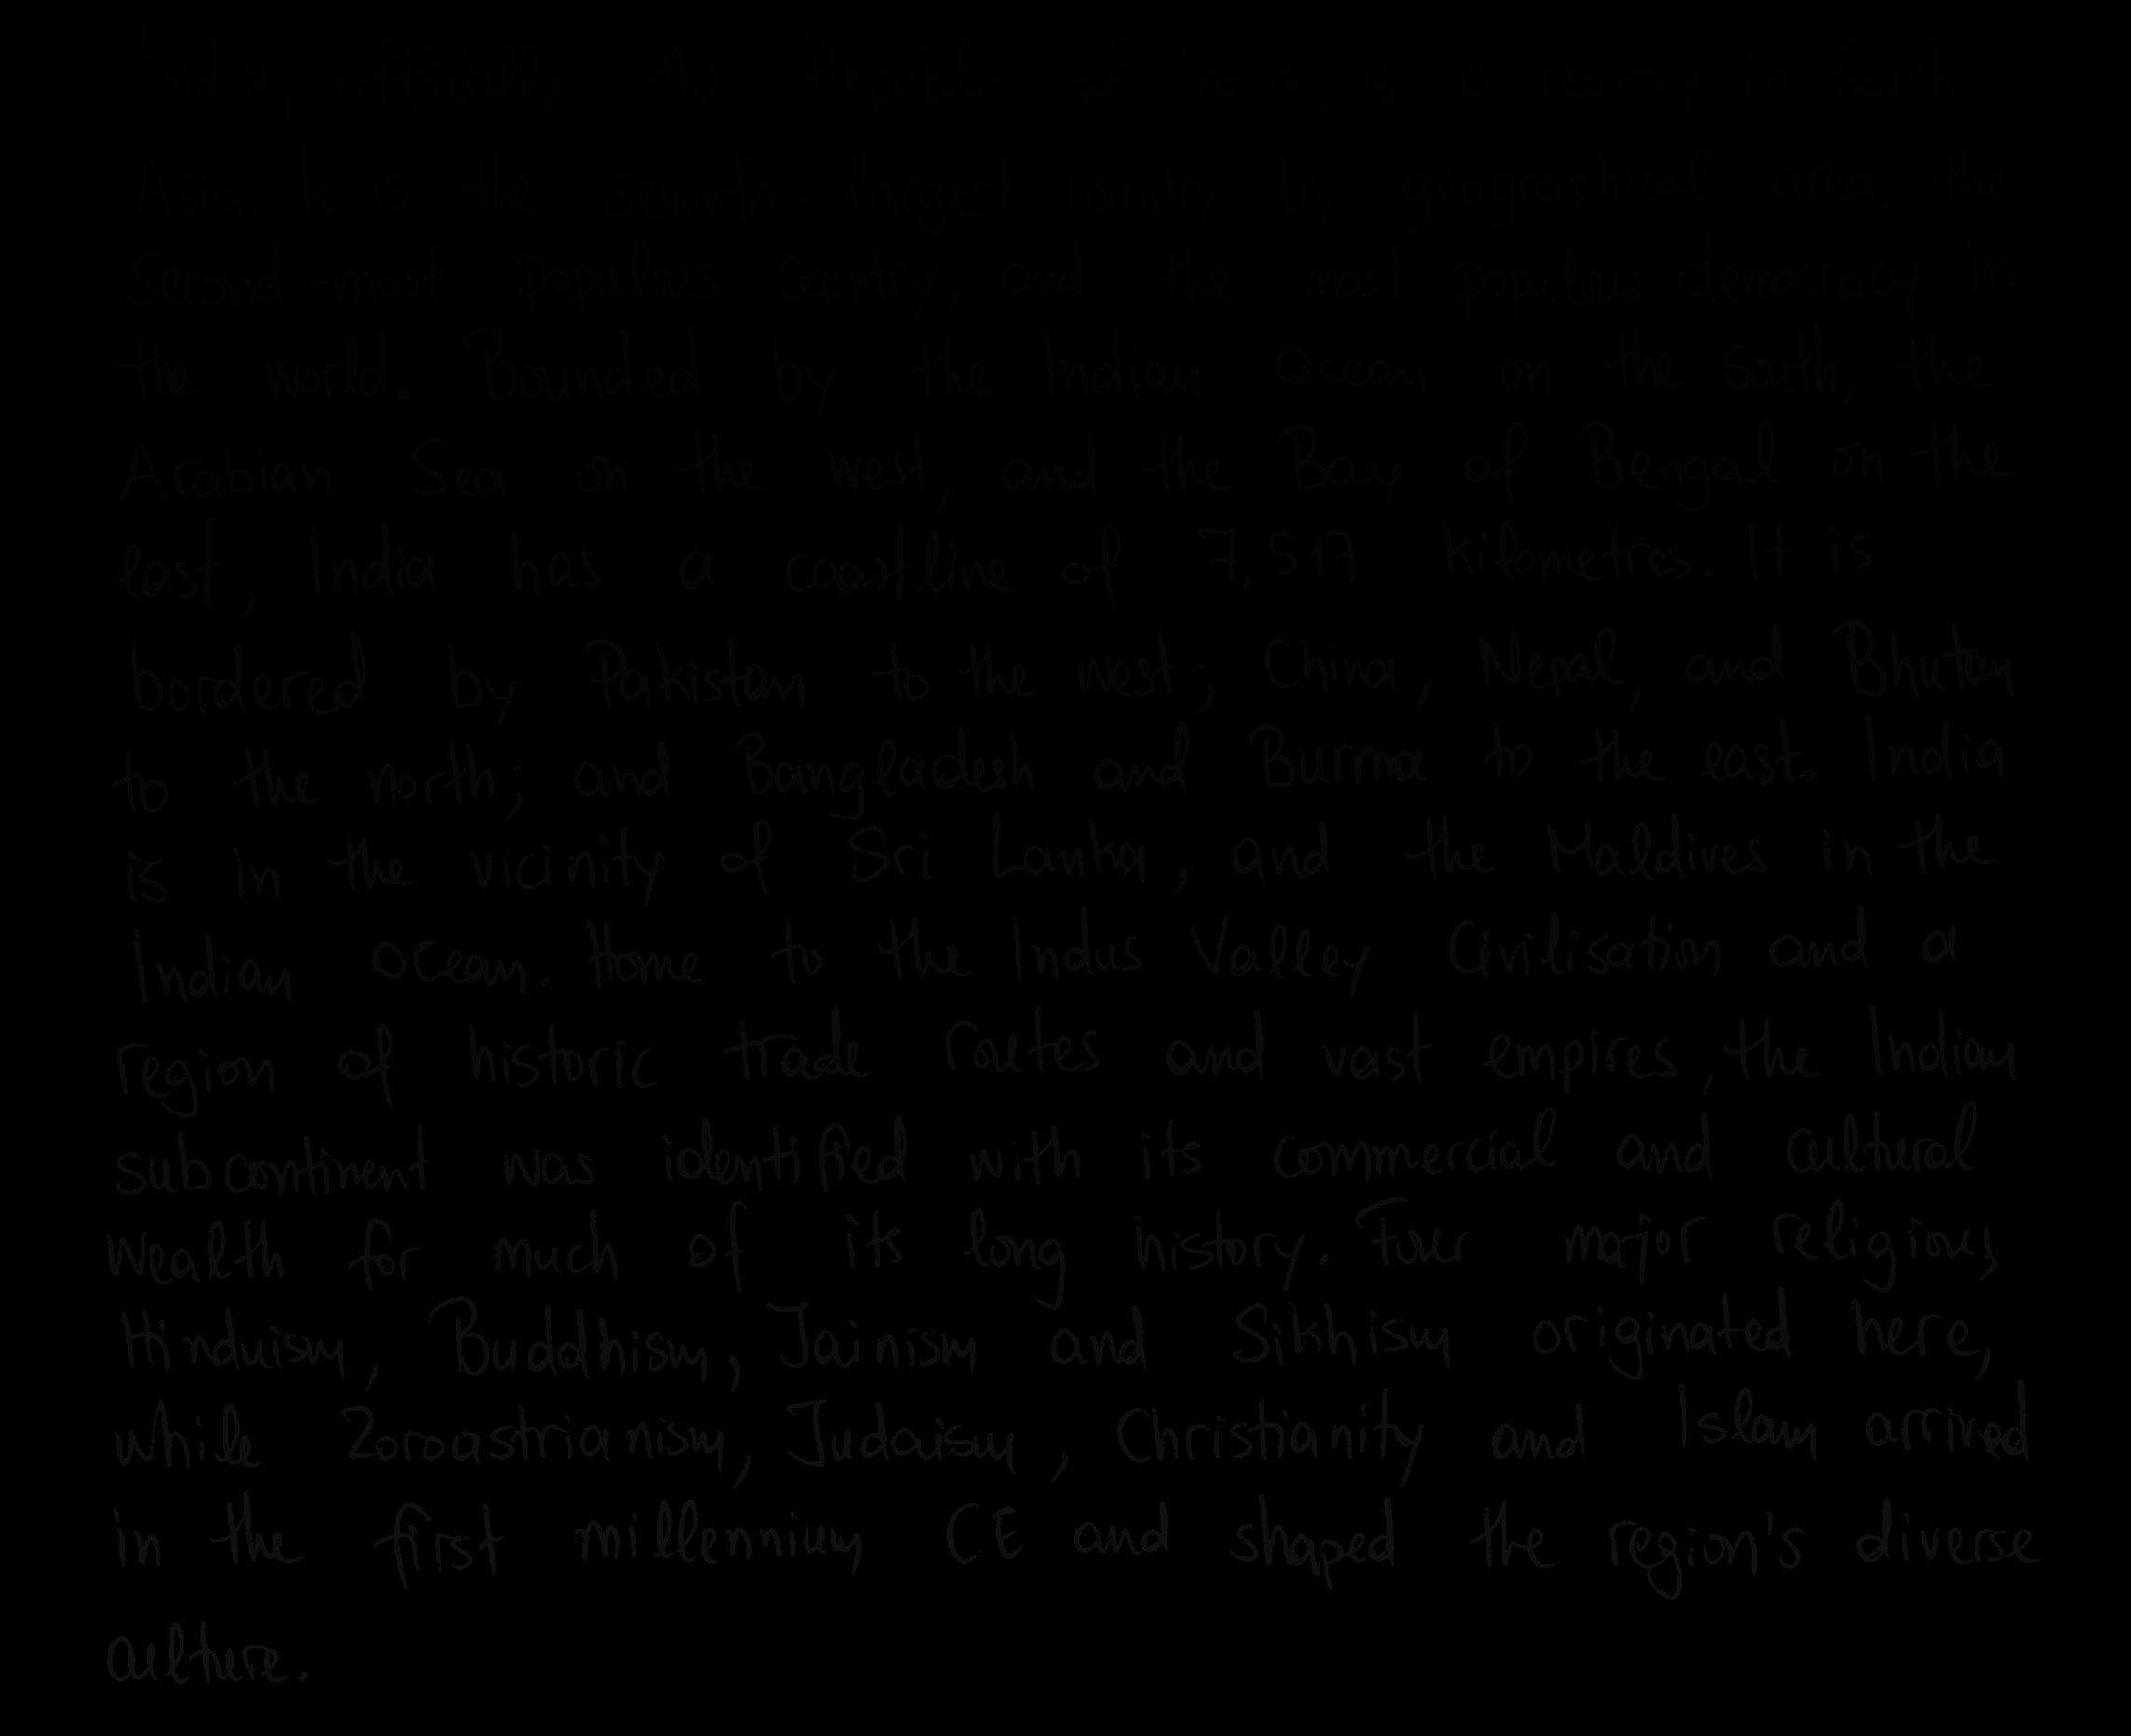 India, officially the Republic of India, is a country in South
Asia. It is the seventh-largest country by geographical area, the
Second-most populous country, and the most populous democracy in
the world. Bounded by the Indian Ocean on the south, the
Arabian Sea on the west, and the Bay of Bengal on the
east, India has a coastline of 7,517 kilometres. It is
bordered by Pakistan to the west; China, Nepal, and Bhutan
to the north; and Bangladesh and Burma to the east. India
is in the vicinity of Sri Lanka, and the Maldives in the
Indian Ocean. Home to the Indus Valley Civilisation and a
region of historic trade routes and vast empires, the Indian
subcontinent was identified with its commercial and cultural
wealth for much of its long history. Four major religions,
Hinduism, Buddhism, Jainism and Sikhism originated here,
while Zoroastrianism, Judaism, Christianity and Islam arrived
in the first millennium CE and shaped the region's diverse
culture.